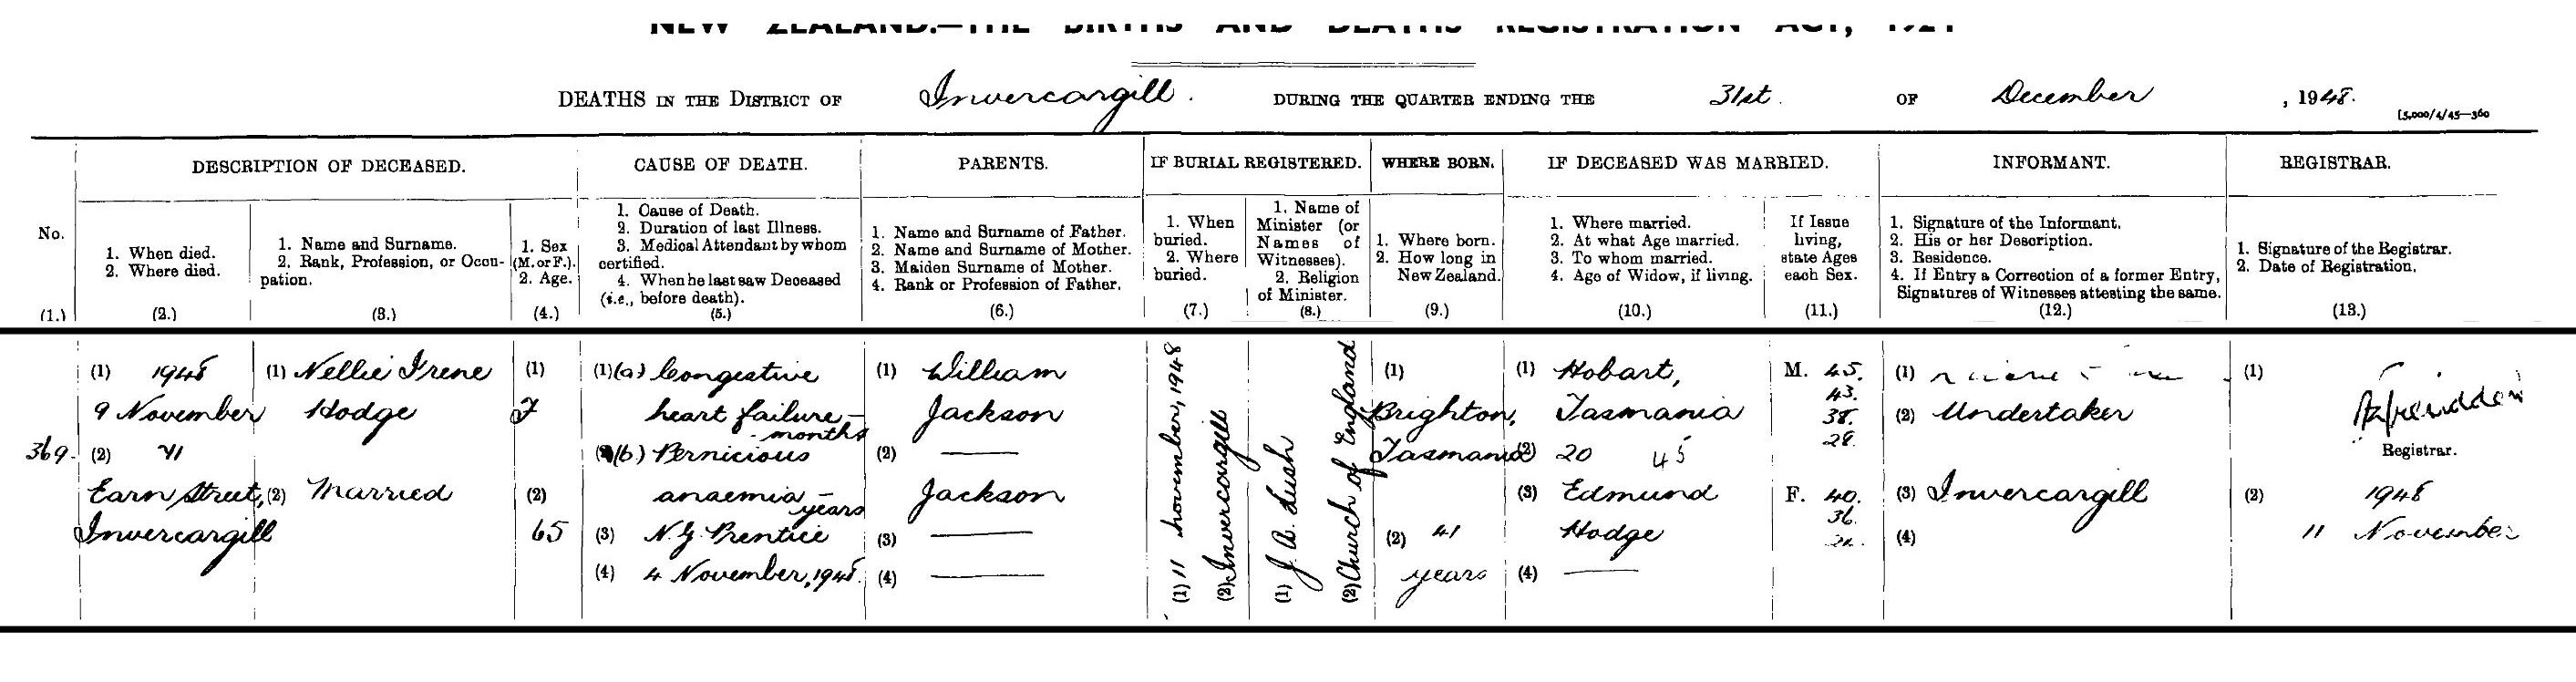 NEW ZEALAND.—THE BIRTHS AND DEATHS REGISTRATION ACT, 1924
DEATHS IN THE DISTRICT OF Invercargill. DURING THE QUARTER ENDING THE 31st. OF December, 1948.
[5,000/4/45—360
No.
(1.)
DESCRIPTION OF DECEASED.
1. When died.
2. Where died.
(2.)
1. Name and Surname.
2. Rank, Profession, or Occu-
pation.
(3.)
1. Sex
(M. or F.).
2. Age.
(4.)
CAUSE OF DEATH.
1. Cause of Death.
2. Duration of last Illness.
3. Medical Attendant by whom
certified.
4. When he last saw Deceased
(i.e., before death).
(5.)
PARENTS.
1. Name and Surname of Father.
2. Name and Surname of Mother.
3. Maiden Surname of Mother.
4. Rank or Profession of Father.
(6.)
IF BURIAL REGISTERED.
1. When
buried.
2. Where
buried.
(7.)
1. Name of
Minister (or
Names of
Witnesses).
2. Religion
of Minister.
(8.)
WHERE BORN.
1. Where born.
2. How long in
New Zealand.
(9.)
IF DECEASED WAS MARRIED.
1. Where married.
2. At what Age married.
3. To whom married.
4. Age of Widow, if living.
(10.)
If Issue
living,
state Ages
each Sex.
(11.)
INFORMANT.
1. Signature of the Informant.
2. His or her Description.
3. Residence.
4. If Entry a Correction of a former Entry,
Signatures of Witnesses attesting the same.
(12.)
REGISTRAR.
1. Signature of the Registrar.
2. Date of Registration.
(13.)
369.
(1) 1948
9 November
(2) 41
Earn Street,
Invercargill
(1) Nellie Irene
Hodge
(2) Married
(1)
F
(2)
65
(1) (a) Congestive
heart failure –
months
(b) Pernicious
anaemia –
years
(3) N. G. Prentice
(4) 4 November, 1948.
(1) William
Jackson
(2) —
Jackson
(3) —
(4) —
(1) 11 November, 1948
(2) Invercargill
(1) J. A. Lush
(2) Church of England
(1)
Brighton,
Tasmania
(2) 41
years
(1) Hobart,
Tasmania
(2) 20 45
(3) Edmund
Hodge
(4) —
M. 45.
43.
38.
28.
F. 40.
36.
(1)
(2) Undertaker
(3) Invercargill
(4)
(1)
Registrar.
(2) 1948
11 November